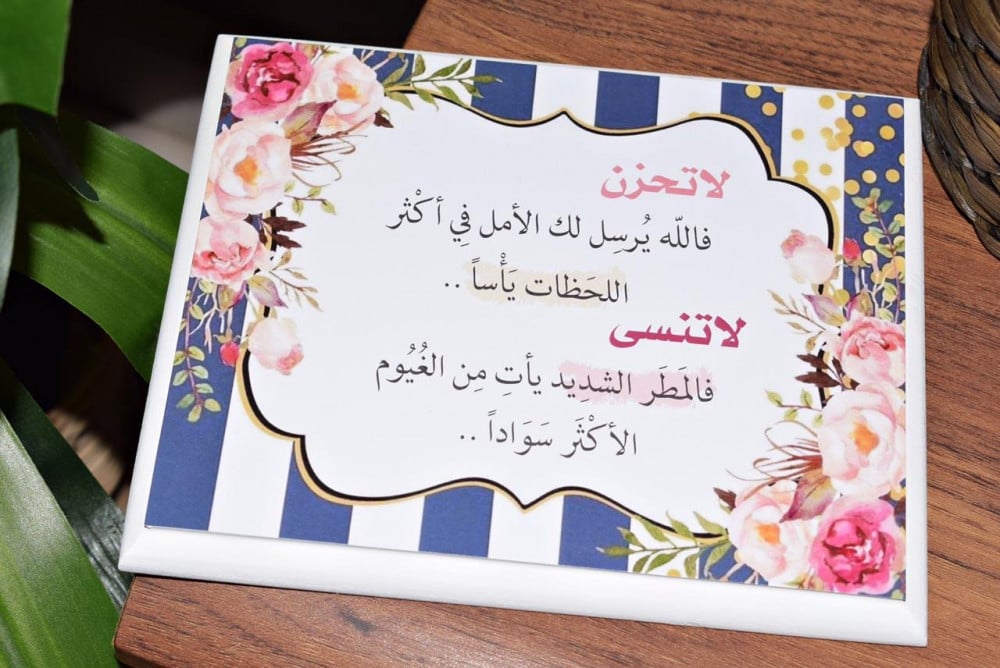 لاتحزن
فاللّه يُرسِل لك الأمل فِي أكْثر
اللحَظات يَأْساً ..
لاتنسى
فالمَطَر الشدِيد يأتِ مِن الغُيُوم
الأكْثَر سَوَاداً ..